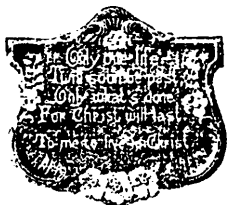 Only one life
Twill soon be past
Only what's done
For Christ will last
To me to live is Christ